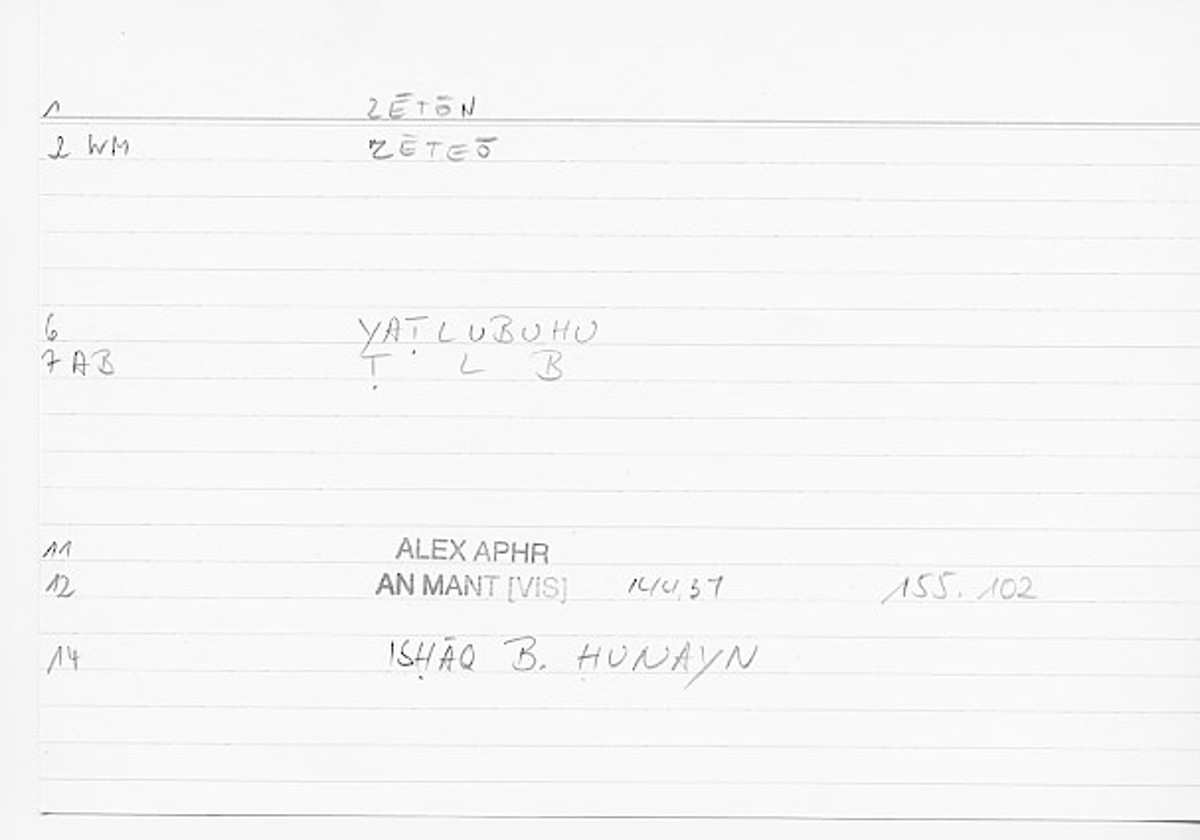 1 ZĒTŌN
2 WM ZĒTEŌ
6 YAṬLUBUHU
7 AB Ṭ L B
11 ALEX APHR
12 AN MANT [VIS] 155.102
14 ISḤĀQ B. ḤUNAYN